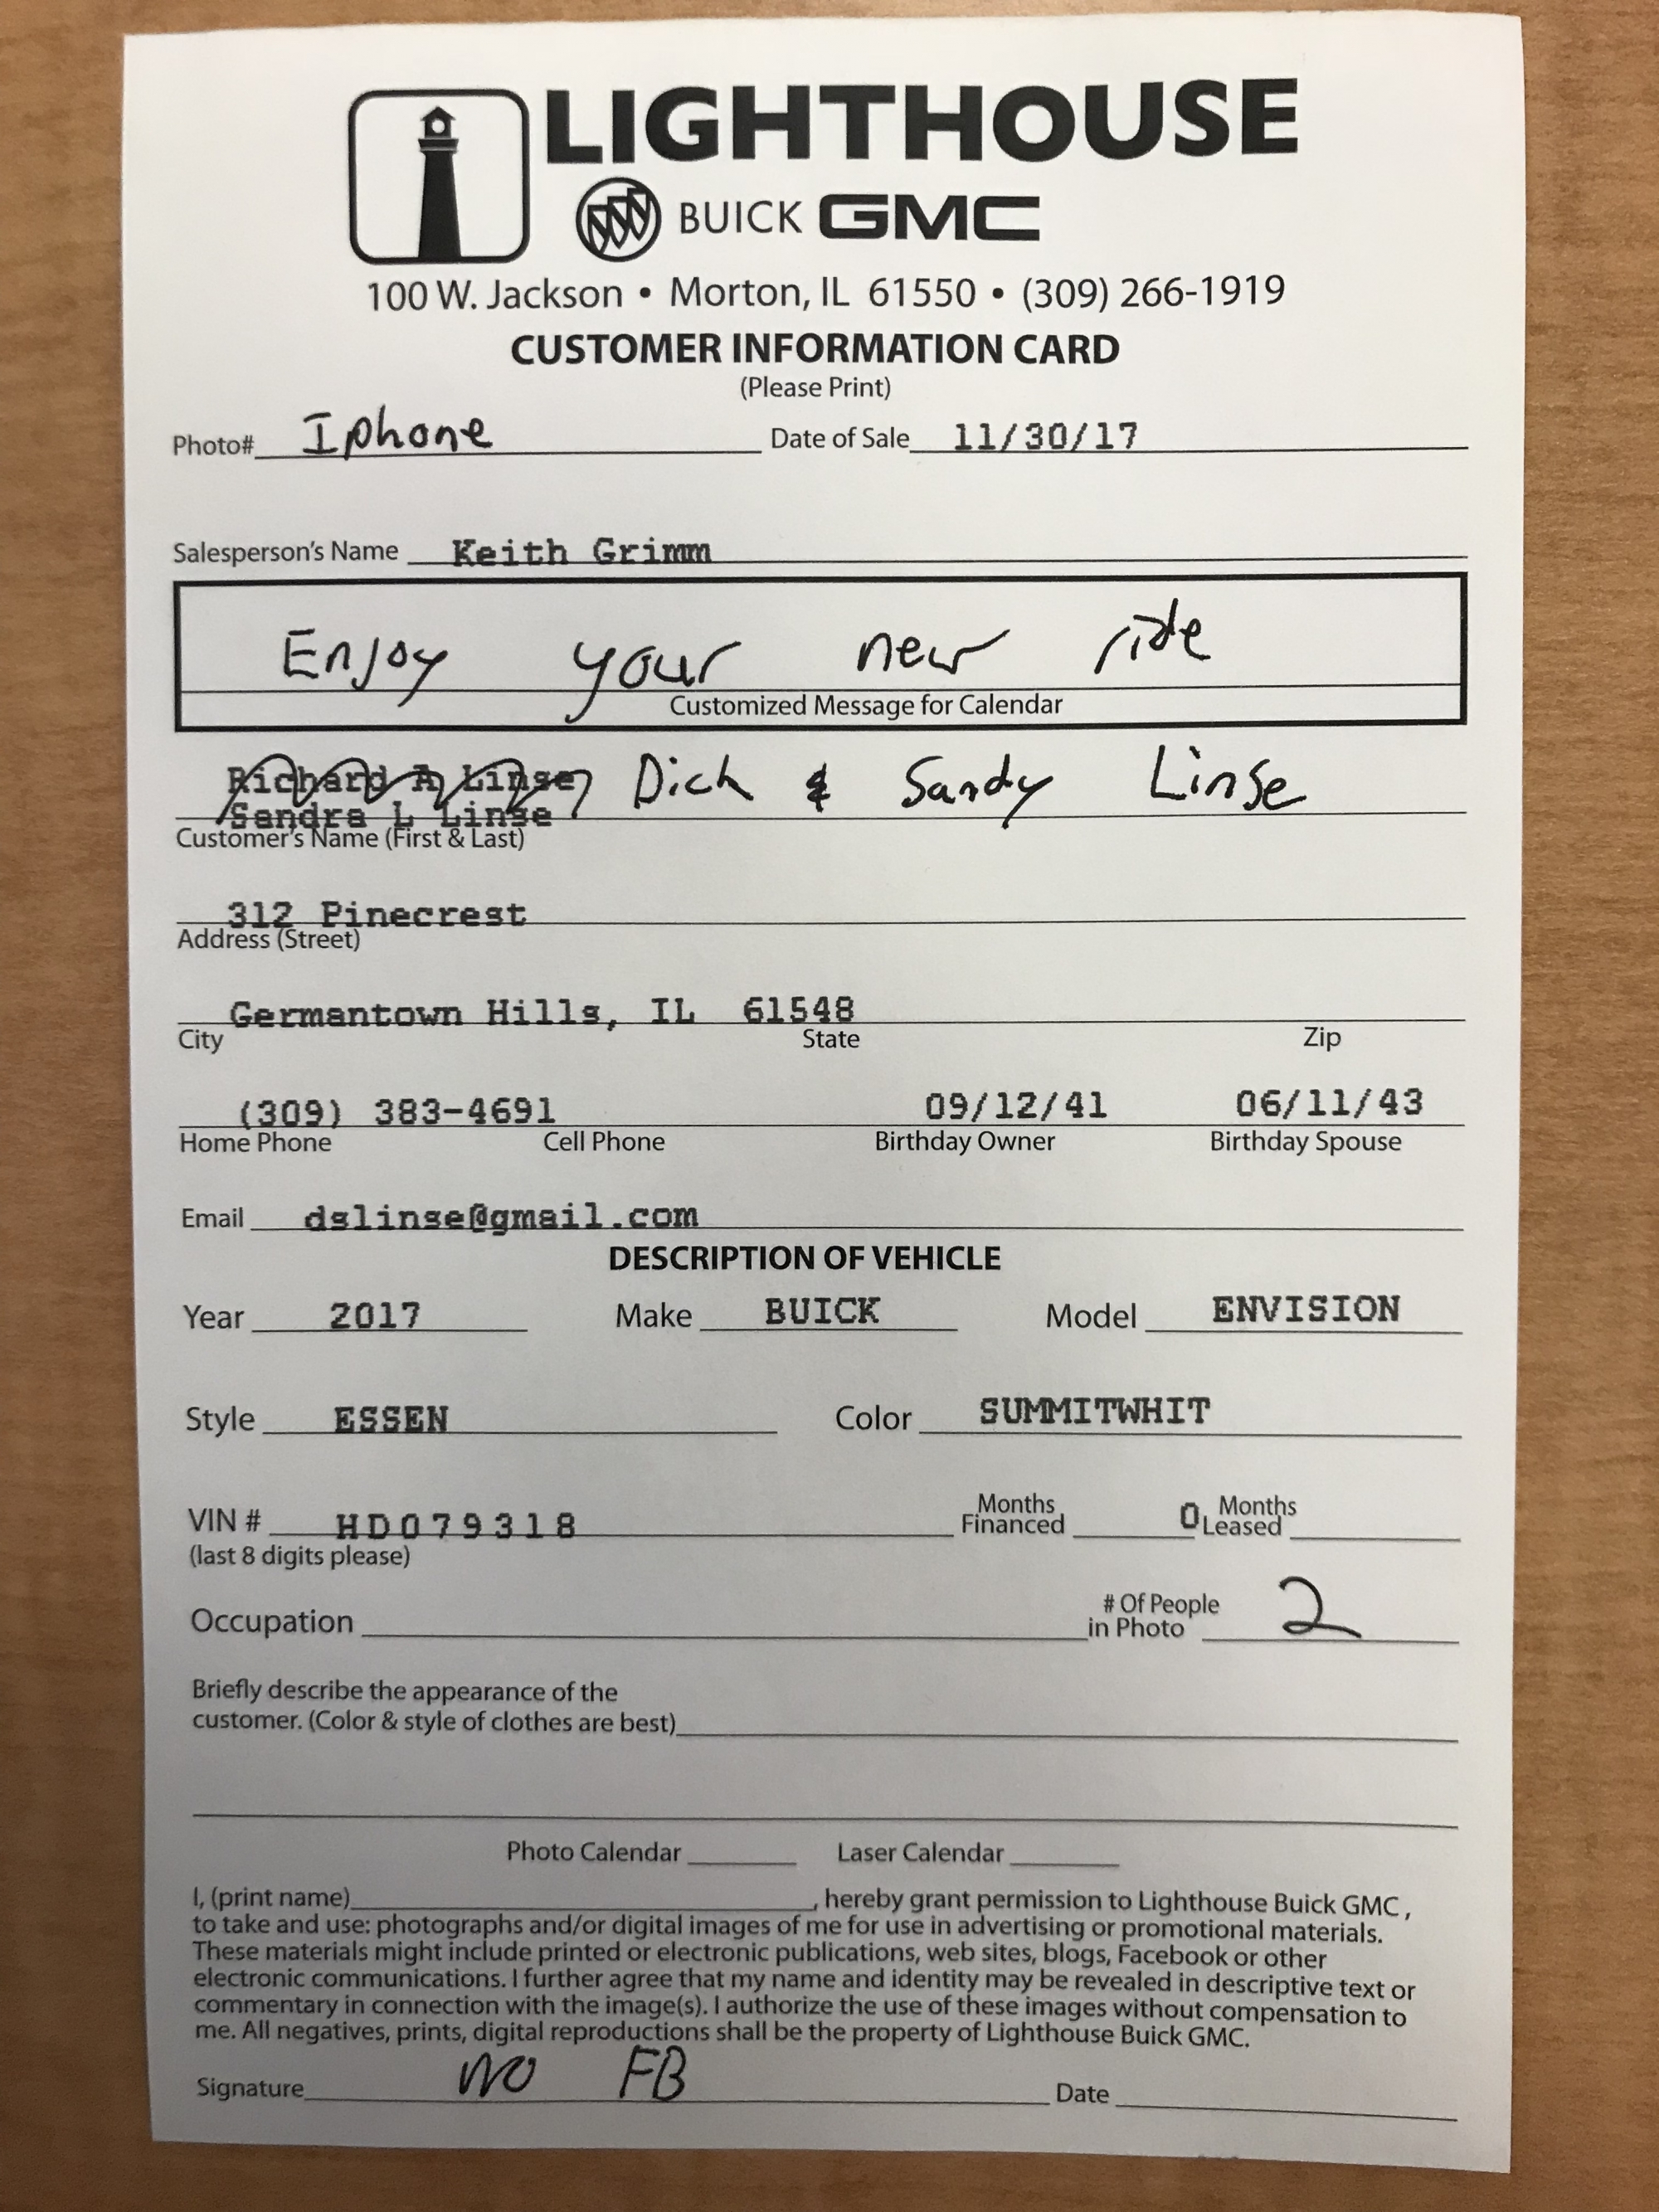 LIGHTHOUSE
BUICK GMC
100 W. Jackson • Morton, IL 61550 • (309) 266-1919
CUSTOMER INFORMATION CARD
(Please Print)
Photo# Iphone Date of Sale 11/30/17
Salesperson's Name Keith Grimm
Enjoy your new ride
Customized Message for Calendar
Richard A Linse
Dick & Sandy Linse
Sandra L Linse
Customer's Name (First & Last)
312 Pinecrest
Address (Street)
Germantown Hills, IL 61548
City State Zip
(309) 383-4691 09/12/41 06/11/43
Home Phone Cell Phone Birthday Owner Birthday Spouse
Email dslinse@gmail.com
DESCRIPTION OF VEHICLE
Year 2017 Make BUICK Model ENVISION
Style ESSEN Color SUMMITWHIT
VIN # HD079318 Months Financed 0 Months Leased
(last 8 digits please)
Occupation # Of People in Photo 2
Briefly describe the appearance of the
customer. (Color & style of clothes are best)
Photo Calendar Laser Calendar
I, (print name) , hereby grant permission to Lighthouse Buick GMC,
to take and use: photographs and/or digital images of me for use in advertising or promotional materials.
These materials might include printed or electronic publications, web sites, blogs, Facebook or other
electronic communications. I further agree that my name and identity may be revealed in descriptive text or
commentary in connection with the image(s). I authorize the use of these images without compensation to
me. All negatives, prints, digital reproductions shall be the property of Lighthouse Buick GMC.
Signature NO FB Date